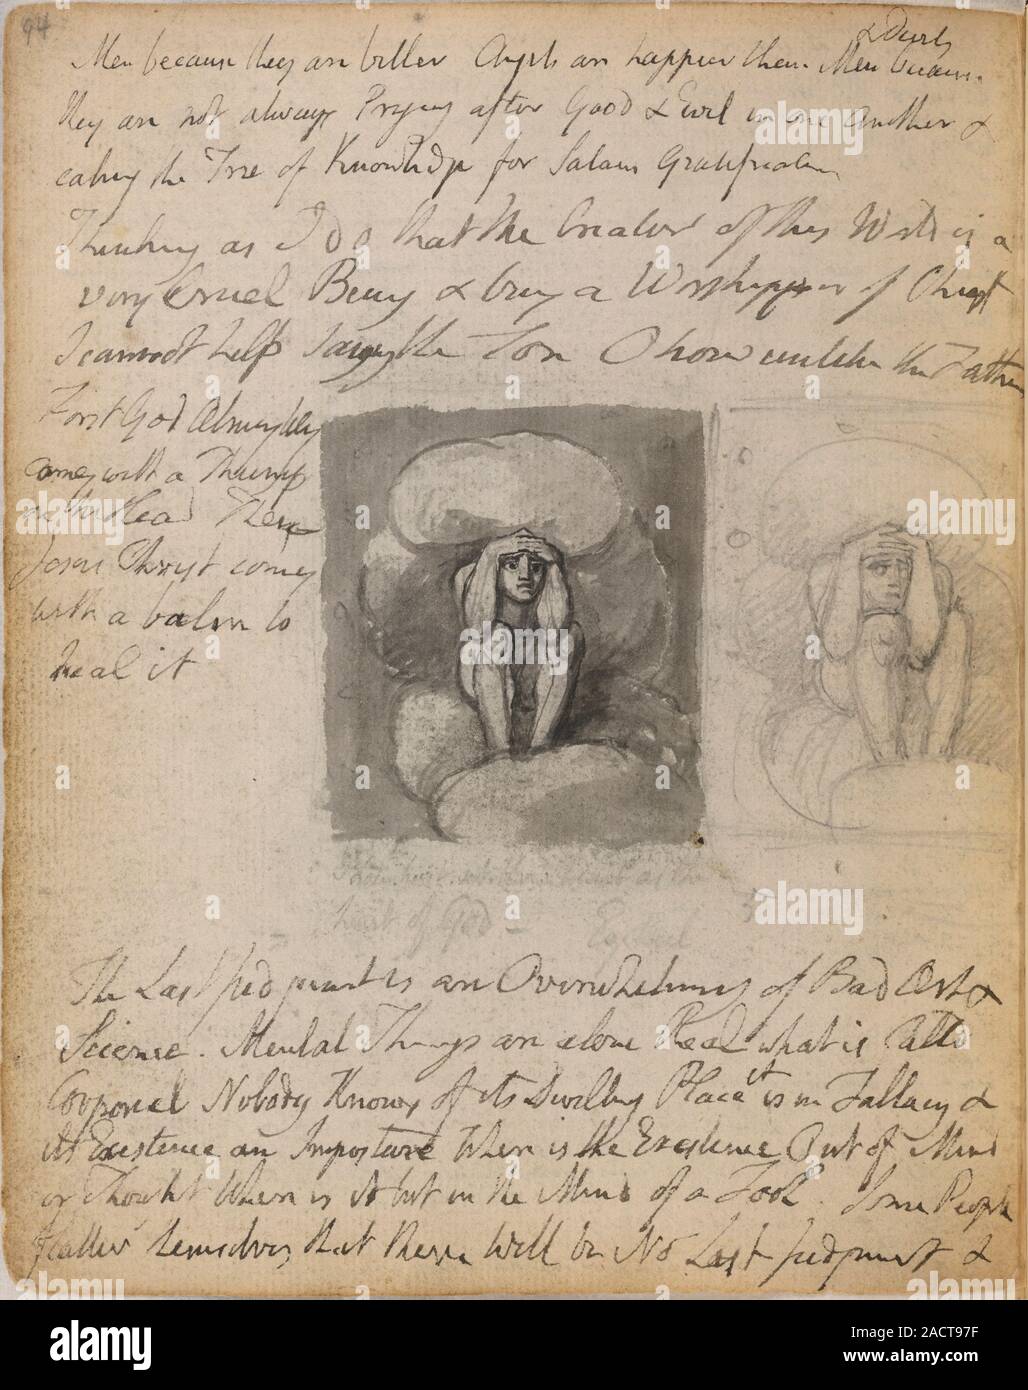 94
& Devils
Men because they are better Angels are happier than Men because
they are not always Prying after Good & Evil in one Another &
eating the Tree of Knowledge for Satans Gratification
Thinking as I do that the Creator of this World is a
very Cruel Being & being a Worshipper of Christ
I cannot help saying the Son O how unlike the Father
First God Almighty
comes with a Thump
on the Head Then
Jesus Christ comes
with a balm to
heal it
heart of God - Ezekiel
The Last Judgment is an Overwhelming of Bad Art &
Science. Mental Things are alone Real what is Calld
Corporeal Nobody Knows of its Dwelling Place it is in Fallacy &
its Existence an Imposture Where is the Existence Out of Mind
or Thought Where is it but in the Mind of a Fool. Some People
flatter themselves that there will be No Last Judgment &
alamy
alamy
alamy
alamy
alamy
Image ID: 2ACT97F
www.alamy.com